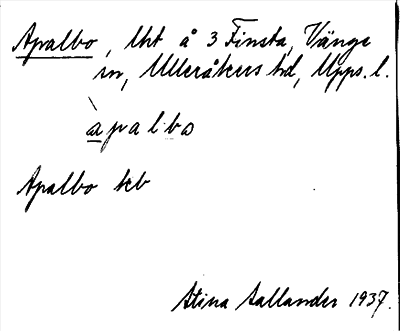 Apalbo, lht å 3 Finsta, Vänge
sn, Ulleråkers hd, Upps. l.
àpalbω
Apalbo kb
Stina Sallander 1937.